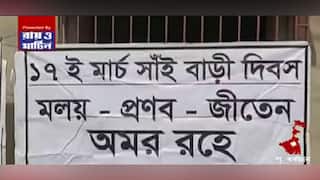 Presented By
রায় ও
মার্টিন
১৭ ই মার্চ সাঁই বাড়ী দিবস
মলয় - প্রণব - জীতেন
অমর রহে